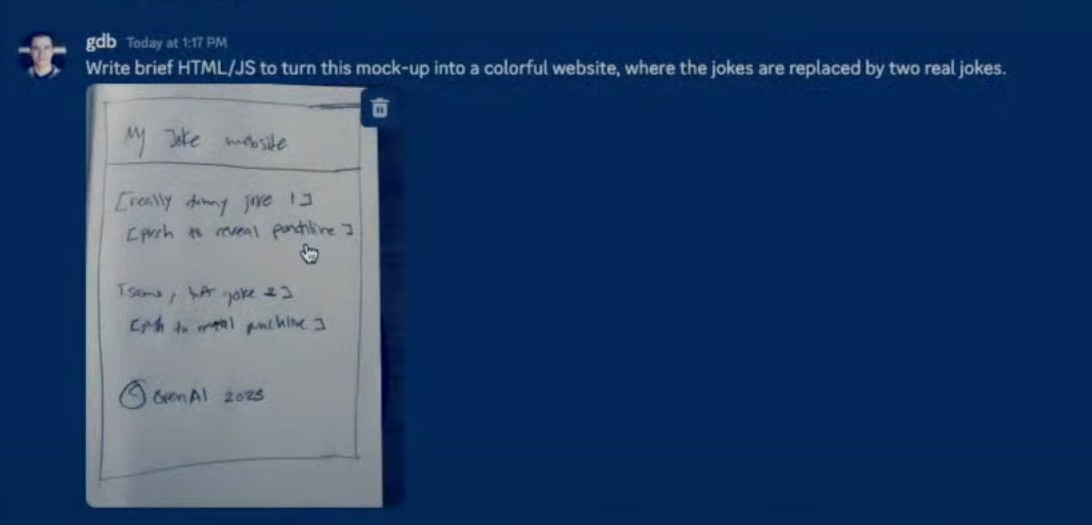 gdb Today at 1:17 PM
Write brief HTML/JS to turn this mock-up into a colorful website, where the jokes are replaced by two real jokes.
My Joke website
[really funny joke 1]
[push to reveal punchline]
[same, but joke 2]
[push to reveal punchline]
© OpenAI 2023